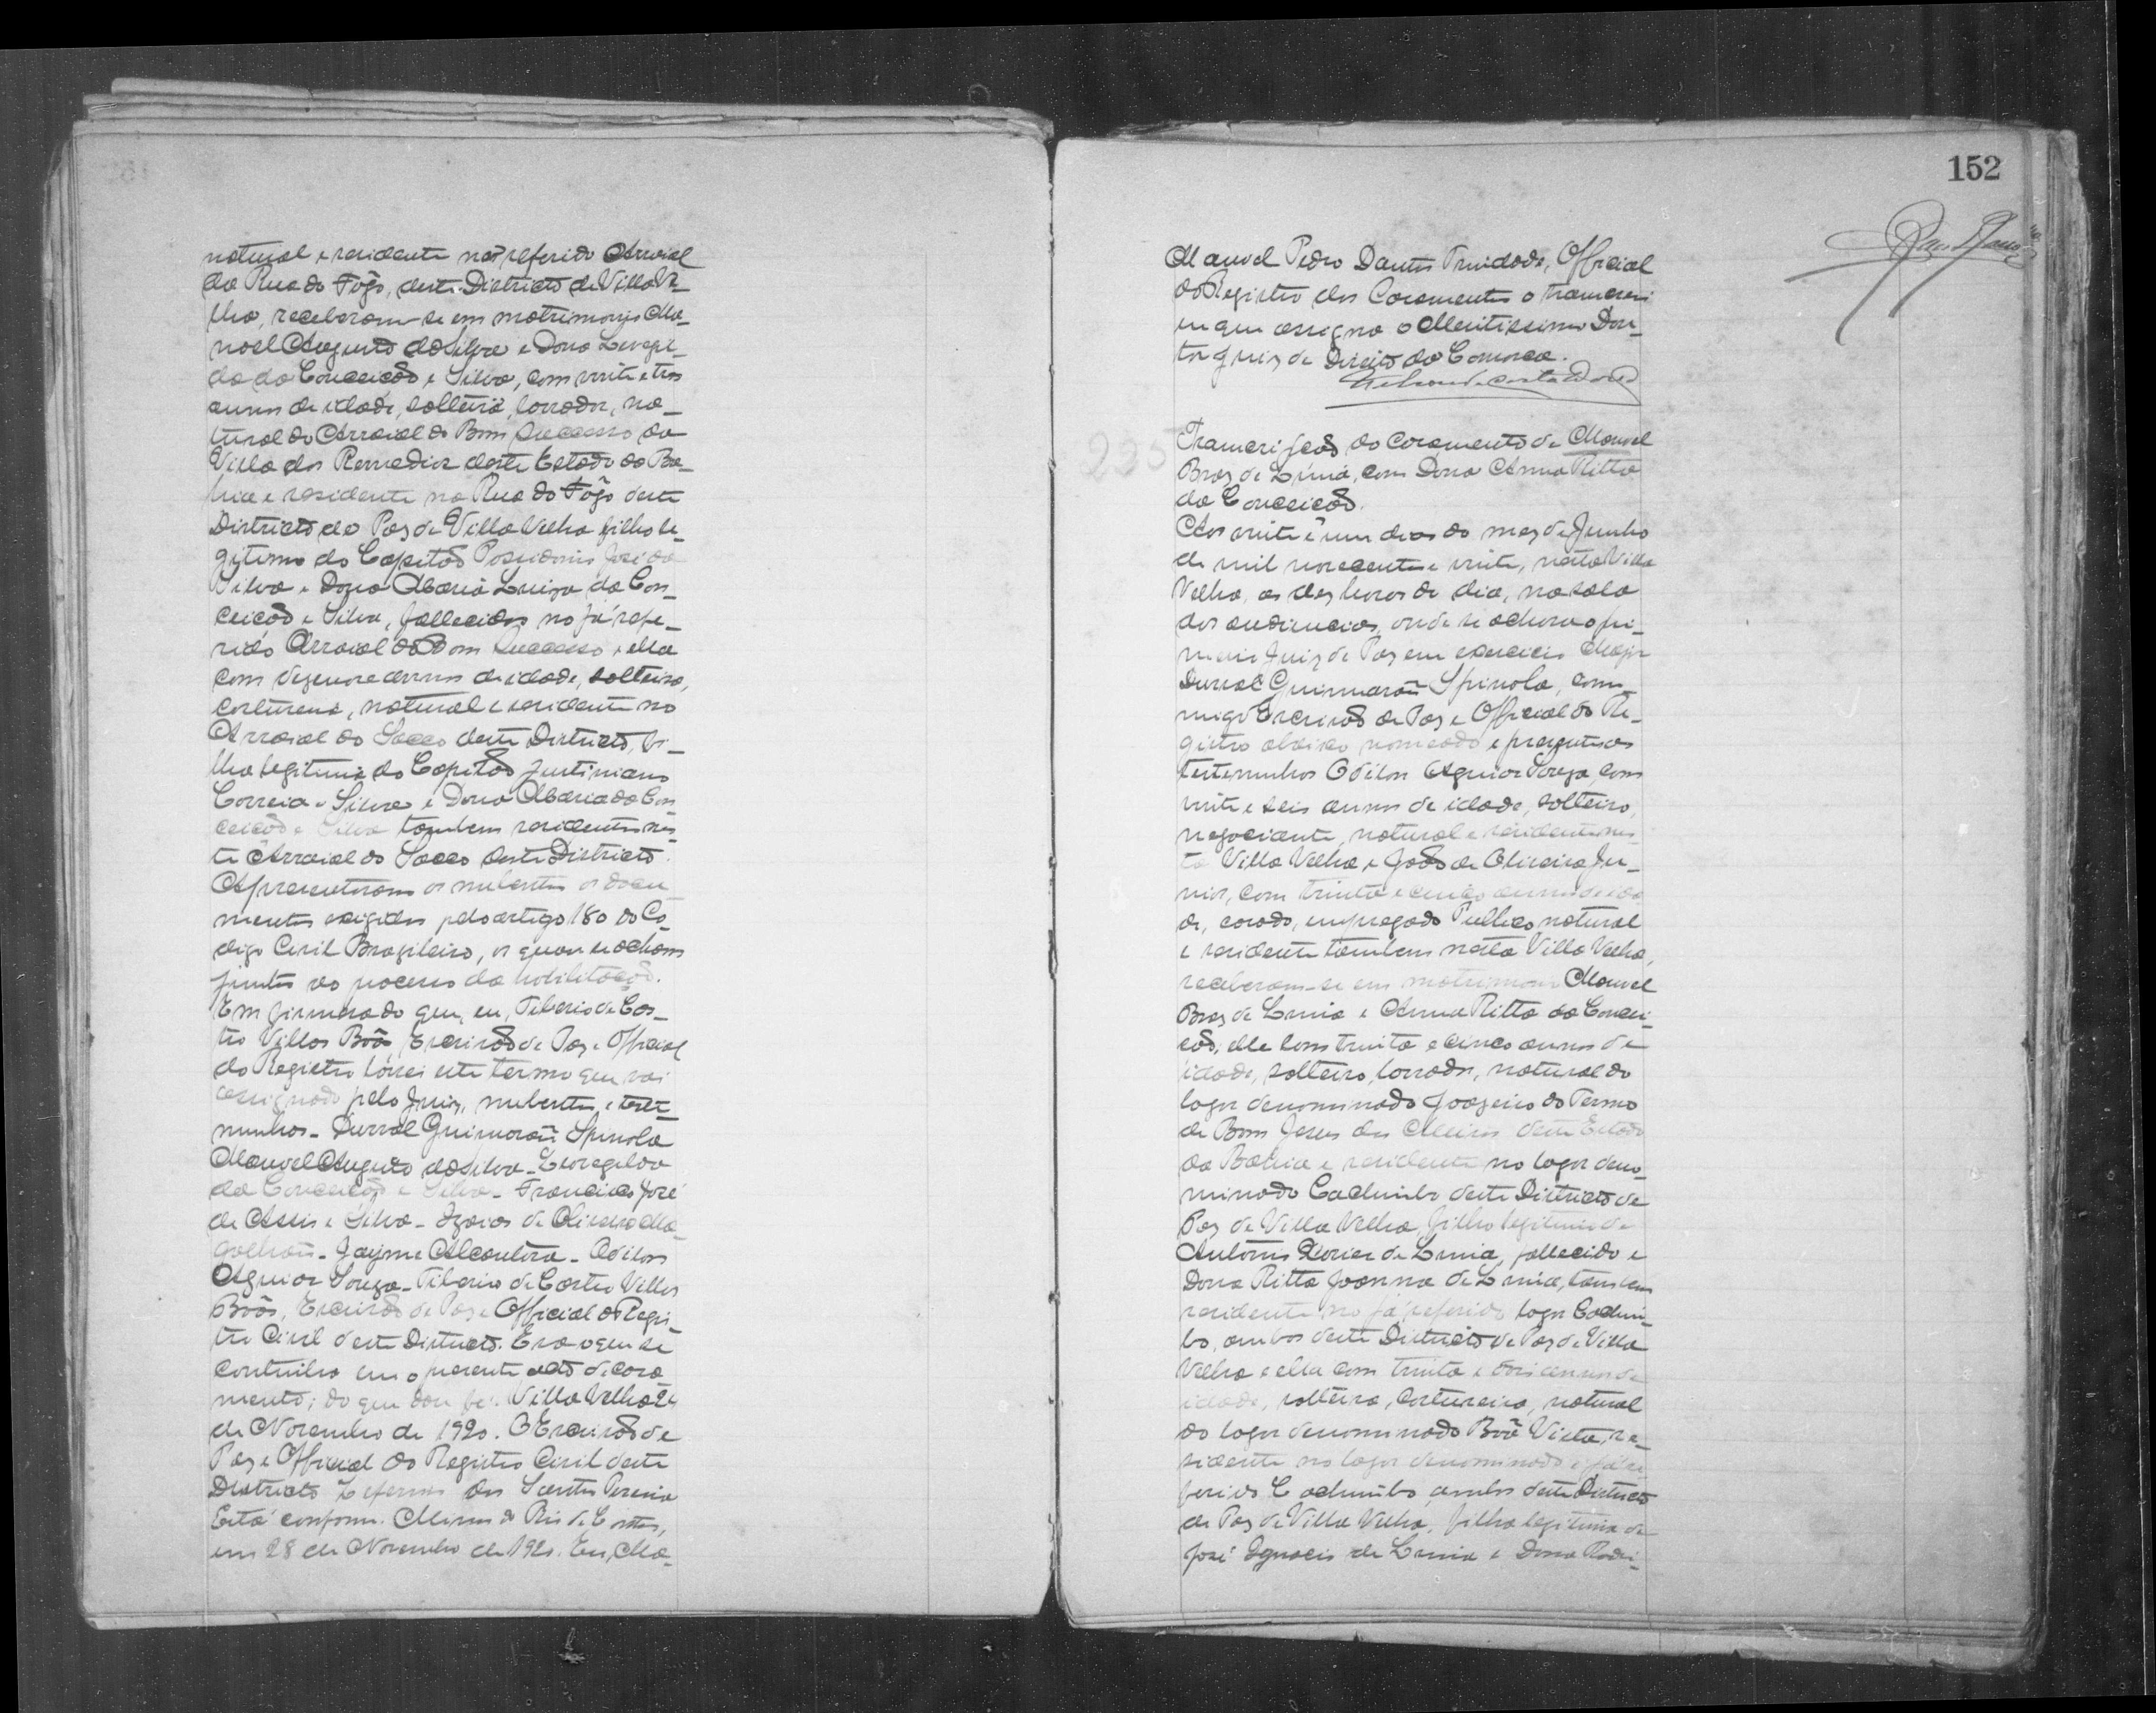 natural e residente no referido Arraial
da Rua do Fôgo, deste Districto de Villa Ve-
lha, receberam-se em matrimonio Ma-
noel Augusto da Silva e Dona Leovegil-
da da Conceição e Silva, com vinte e tres
annos de idade, solteiro, lavrador, na-
tural do Arraial do Bom Successo da
Villa dos Remedios deste Estado da Ba-
hia e residente na Rua do Fôgo deste
Districto de Paz de Villa Velha filho le-
gitimo do Capitão Possidonio José da
Silva e Dona Maria Luiza da Con-
ceicão e Silva, fallecidos no já refe-
rido Arraial do Bom Successo, e ella
com dezenove annos de idade, solteira,
costureira, natural e residente no
Arraial do Sacco deste Districto, fi-
lha legitima do Capitão Justiniano
Correia e Silva e Dona Maria da Con-
ceicão e Silva tambem residentes nes-
te Arraial do Sacco deste Districto.
Apresentaram os nubentes os docu-
mentos exigidos pelo artigo 180 do Co-
digo Civil Brazileiro, os quaes se acham
juntos ao processo da habilitação.
Em firmeza do que, eu, Tiberio de Cas-
tro Villas Bôas, Escrivão de Paz e Official
do Registro lavrei este termo que vai
assignado pelo Juiz, nubentes e teste-
munhas - Durval Guimarães Spinola
Manoel Augusto da Silva - Leovegilda
da Conceicão e Silva - Francisco José
de Assis e Silva - Izaias de Oliveira Ma-
galhães - Jayme Alcantara - Odilon
Aguiar Souza - Tiberio de Castro Villas
Bôas, Escrivão de Paz e Official do Regis-
tro Civil deste Districto. Era o que se
continha em o presente acto de casa-
mento; do que dou fé. Villa Velha 24
de Novembro de 1920. O Escrivão de
Paz e Official do Registro Civil deste
Districto dos Santos Pereira
Está conforme. Minas do Rio de Contas,
em 28 de Novembro de 1920. Eu, Ma-
152
Manoel Pedro Dantas Trindade, Official
do Registro dos Casamentos o transcrevi
em que assigna o Meritissimo Dou-
tor Juiz de Direito da Comarca.
225
Transcripção do casamento de Manoel
Braz de Lima, com Dona Anna Ritta
da Conceicão.
Aos vinte e um dias do mez de Junho
de mil novecentos e vinte, nesta Villa
Velha, as dez horas do dia, na sala
das audiencias, onde se achava o pri-
meiro Juiz de Paz em exercicio Major
Durval Guimarães Spinola, com-
migo Escrivão de Paz e Official do Re-
gistro abaixo nomeado e presentes as
testemunhas Odilon Aguiar Souza, com
vinte e seis annos de idade, solteiro,
negociante, natural e residente nes-
ta Villa Velha e João de Oliveira Ju-
nior, com trinta e cinco annos de ida-
de, casado, empregado Publico natural
e residente tambem nesta Villa Velha,
receberam-se em matrimonio Manoel
Braz de Lima e Anna Ritta da Concei-
cão, elle com trinta e cinco annos de
idade, solteiro, lavrador, natural do
logar denominado Joazeiro do Termo
de Bom Jesus dos Meiras deste Estado
da Bahia e residente no logar deno-
minado Cachimbo deste Districto de
Paz de Villa Velha, filho legitimo de
Antonio Xavier de Lima, fallecido e
Dona Ritta Joanna de Lima, tambem
residente no já referido logar Cachim-
bo, ambos deste Districto de Paz de Villa
Velha e ella com trinta e dois annos de
idade, solteira, costureira, natural
do logar denominado Bôa Vista, re-
sidente no logar denominado e já re-
ferido Cachimbo, ambos deste Districto
de Paz de Villa Velha, filha legitima de
José Ignacio de Lima e Dona Rodri-